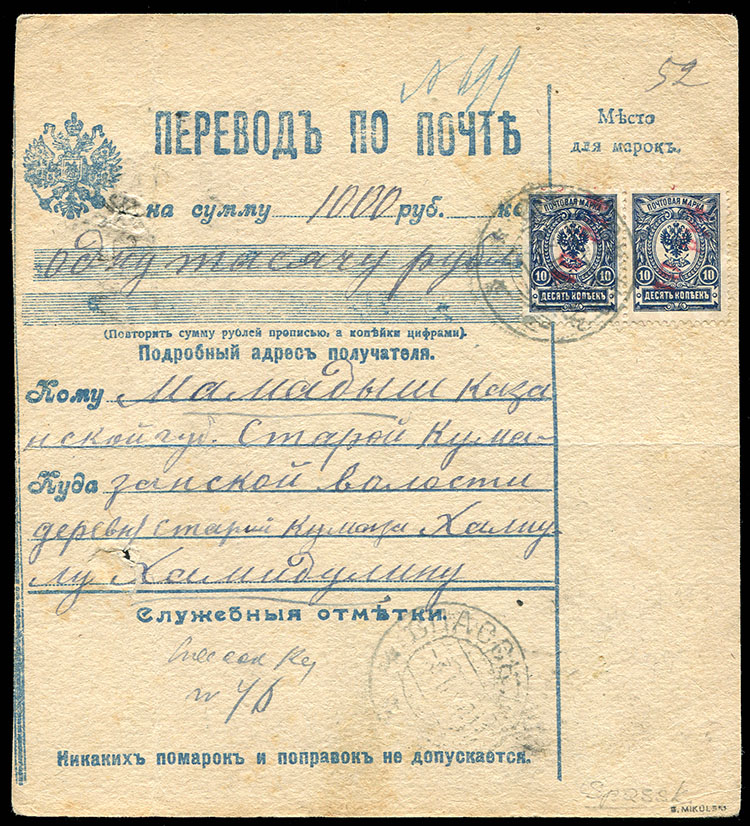 № 699
52
ПЕРЕВОДЪ ПО ПОЧТѢ
Мѣсто
для марокъ.
на сумму 1000 руб. ко
одну тысячу рубл
ПОЧТОВАЯ МАРКА
10 10
ДЕСЯТЬ КОПѢЕКЪ
ПОЧТОВАЯ МАРКА
10 10
ДЕСЯТЬ КОПѢЕКЪ
(Повторить сумму рублей прописью, а копѣйки цифрами).
Подробный адресъ получателя.
Кому Мамадыш Каза
нской губ. Старой Кума-
Куда занской волости
деревн Старой Кумаза Халиу
лу Хамидулину
Служебныя отмѣтки.
СПАССК
Никакихъ помарокъ и поправокъ не допускается.
Spassk
S. MIKULSKI